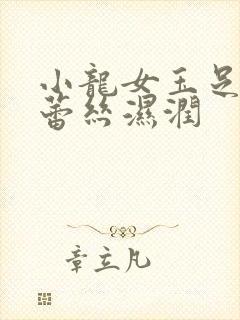 小龍女玉足
蕾絲濕潤
章立凡